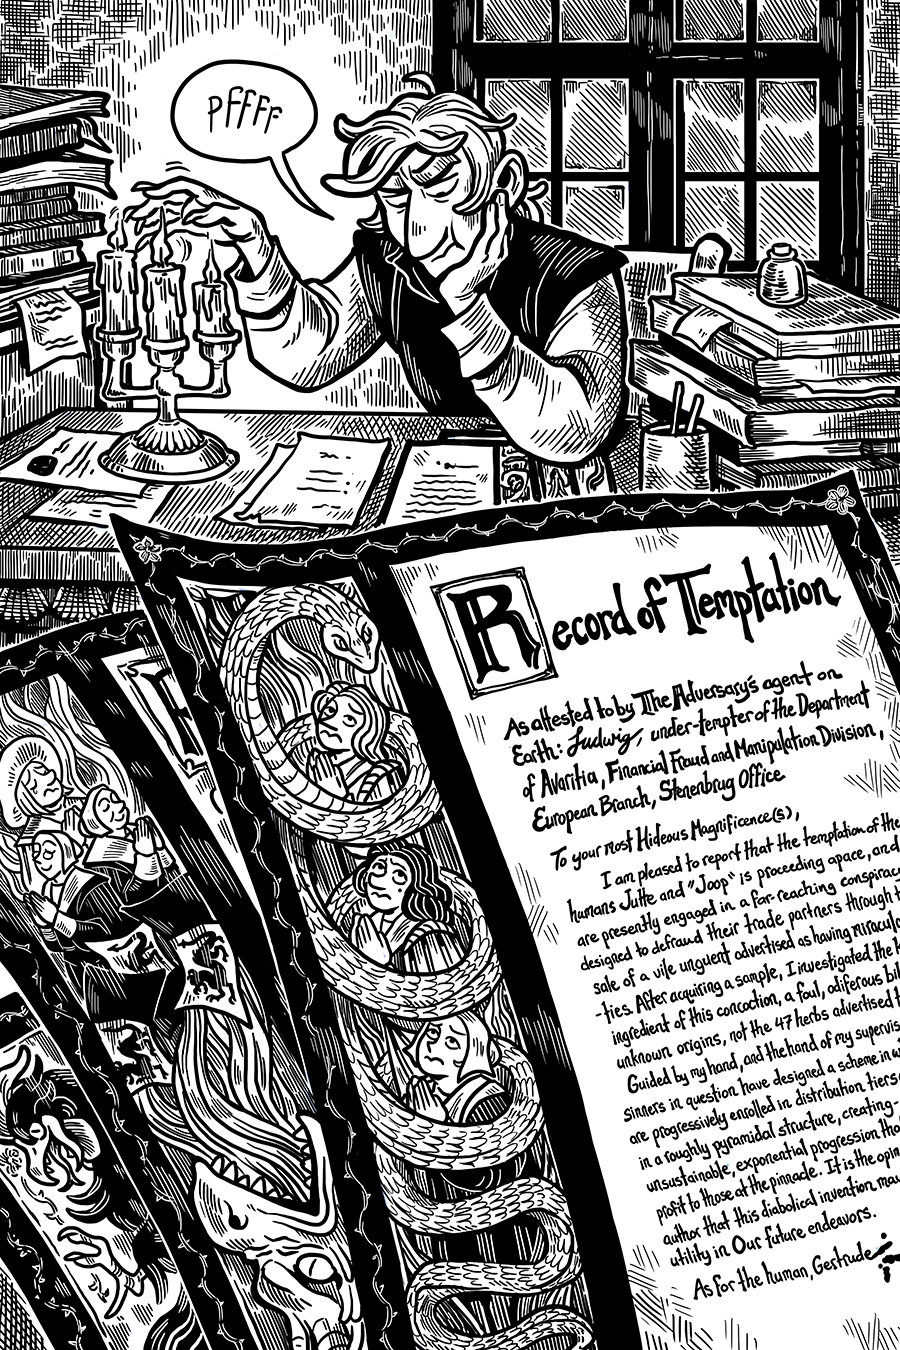 PFFFF
Record of Temptation
As attested to by The Adversary's agent on
Earth: Ludwig, under-tempter of the Department
of Avaritia, Financial Fraud and Manipulation Division,
European Branch, Stenenbrug Office
To your most Hideous Magnificence(s),
I am pleased to report that the temptation of the
humans Jutte and "Joop" is proceeding apace, and
are presently engaged in a far-reaching conspirac
designed to defraud their trade partners through t
sale of a vile unguent advertised as having miracul
-ties. After acquiring a sample, I investigated the k
ingredient of this concoction, a foul, odiferous bil
unknown origins, not the 47 herbs advertised t
Guided by my hand, and the hand of my supervis
sinners in question have designed a scheme in w
are progressively enrolled in distribution tiers
in a roughly pyramidal structure, creating
unsustainable, exponential progression tha
profit to those at the pinnacle. It is the opin
author that this diabolical invention may
utility in Our future endeavors.
As for the human, Gertrude